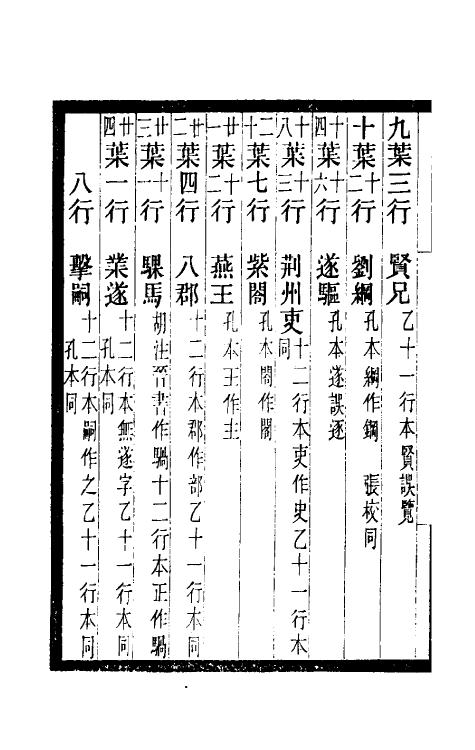 九葉三行 賢兄 乙十一行本賢誤覽
十葉十二行 劉綱 孔本綱作鋼 張校同
十四葉十六行 遂驅 孔本遂誤逐
十八葉十三行 荆州吏 十二行本吏作史乙十一行本同
二十葉七行 紫閤 孔本閤作閣
廿一葉十二行 燕王 孔本王作主
廿二葉四行 八郡 十二行本郡作部乙十一行本同
廿三葉十一行 騍馬 胡注晉書作騧十二行本正作騧
廿四葉一行 業遂 十二行本無遂字乙十一行本同孔本同
八行 擊嗣 十二行本嗣作之乙十一行本同孔本同